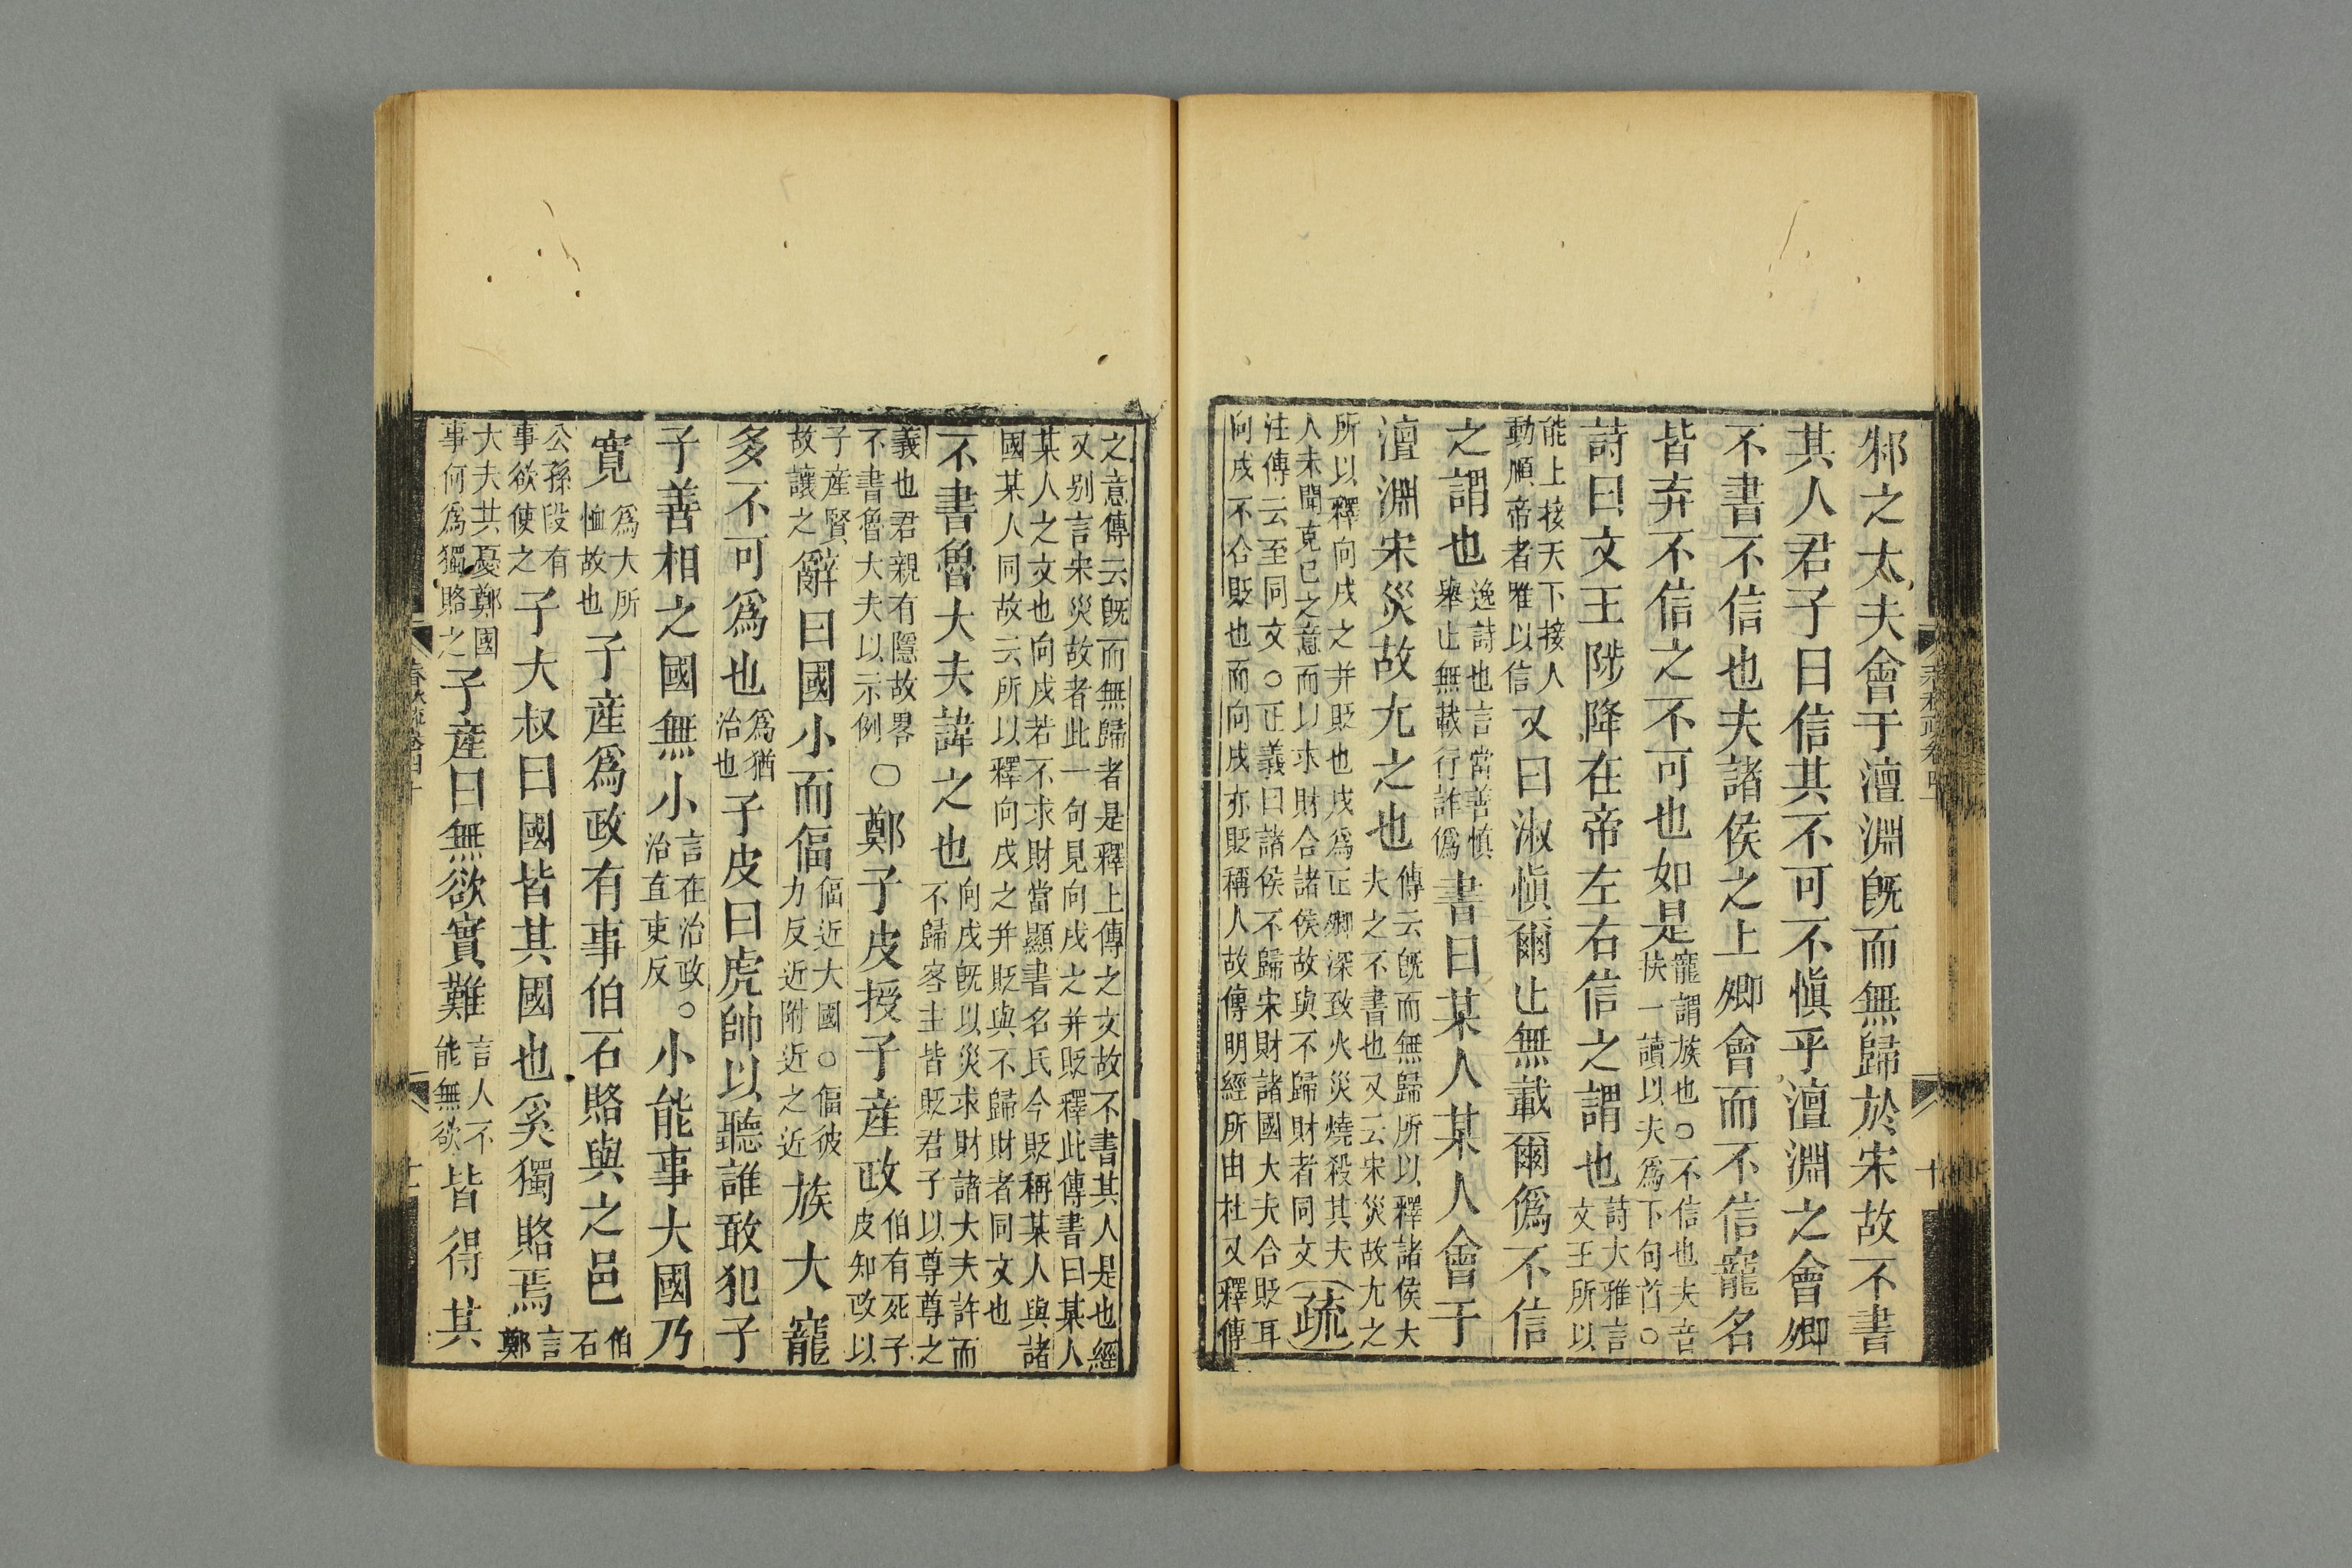 邾之大夫會于澶淵旣而無歸於宋故不書
其人君子曰信其不可不愼乎澶淵之會卿
不書不信也夫諸侯之上卿會而不信寵名
皆弃不信之不可也如是寵謂族也○不信也夫音扶一讀以夫爲下句首○
詩曰文王陟降在帝左右信之謂也詩大雅言文王所以
能上接天下接人動順帝者唯以信又曰淑愼爾止無載爾僞不信
之謂也逸詩也言當善愼舉止無載行詐僞書曰某人某人會于
澶淵宋災故尤之也傳云旣而無歸所以釋諸侯大夫之不書也又云宋災故尤之
所以釋向戌之并貶也戌爲正卿深致火災燒殺其夫
人未聞克已之意而以求財合諸侯故與不歸財者同文疏
注傳云至同文○正義曰諸侯不歸宋財諸國大夫合貶耳
向戌不合貶也而向戌亦貶稱人故傳明經所由杜又釋傳
之意傳云旣而無歸者是釋上傳之文故不書其人是也經
又別言宋災故者此一句見向戌之并貶釋此傳書曰某人
某人之文也向戌若不求財當顯書名氏今貶稱某人與諸
國某人同故云所以釋向戌之并貶與不歸財者同文也
不書魯大夫諱之也向戌旣以災求財諸大夫許而不歸客主皆貶君子以尊尊之
義也君親有隱故畧不書魯大夫以示例○鄭子皮授子産政伯有死子皮知政以
子産賢故讓之辭曰國小而偪偪近大國○偪彼力反近附近之近族大寵
多不可爲也爲猶治也子皮曰虎帥以聽誰敢犯子
子善相之國無小言在治政○治直吏反小能事大國乃
寬爲大所恤故也子産爲政有事伯石賂與之邑伯石
公孫段有事欲使之子大叔曰國皆其國也奚獨賂焉言鄭
大夫共憂鄭國事何爲獨賂之子産曰無欲實難言人不能無欲皆得其